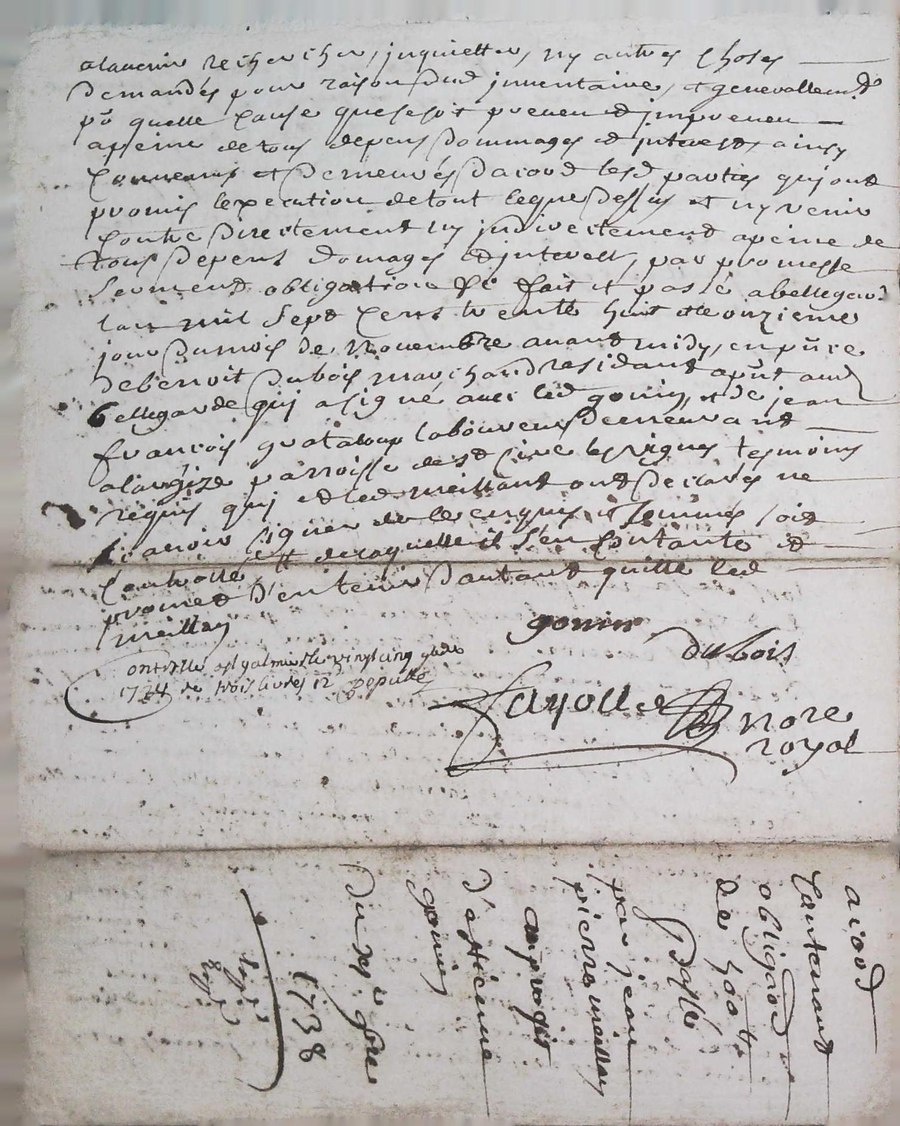 alavenir rechercher, inquietter, ny autres choses
demandés pour raison dud inventaire, et generallement
pr quelle cause que se soit preveu et impreveu
apeine de tous depens dommages et interests ainsy
convenus et demeurés dacord lesd parties qui ont
promis lexecution de tout ceque dessus et ny venir
contre directement ny indirectement apeine de
tous depens domages et interest, par promesse
serment obligation &c fait et passé a bellegarde
lan mil sept cens trente huit et le onzieme
jour du mois de novembre avant midy, en pnce
de benoit dubois marchand residant aud
bellegarde qui a signé avec led gonin, et de jean
francois grataloup laboureur demeurant
paroisse de st les vignes tesmoins
requis qui et led meillant ont declarés ne
scavoir signer de ce enquis et sommés soit
controllé de laquelle il s'en contante et
promet d'en tenir d'autant quitte led
meillan
gonin
dubois
Controllé a st galmier le vingt cinq gbre
1738 re trois livres 12s
fayolle nore
royal
acord
contenant
obligaon
de 400 lt
passé
par jean
pierre meillan
au profit
d'estienne
gonin
du 11e gbre
1738